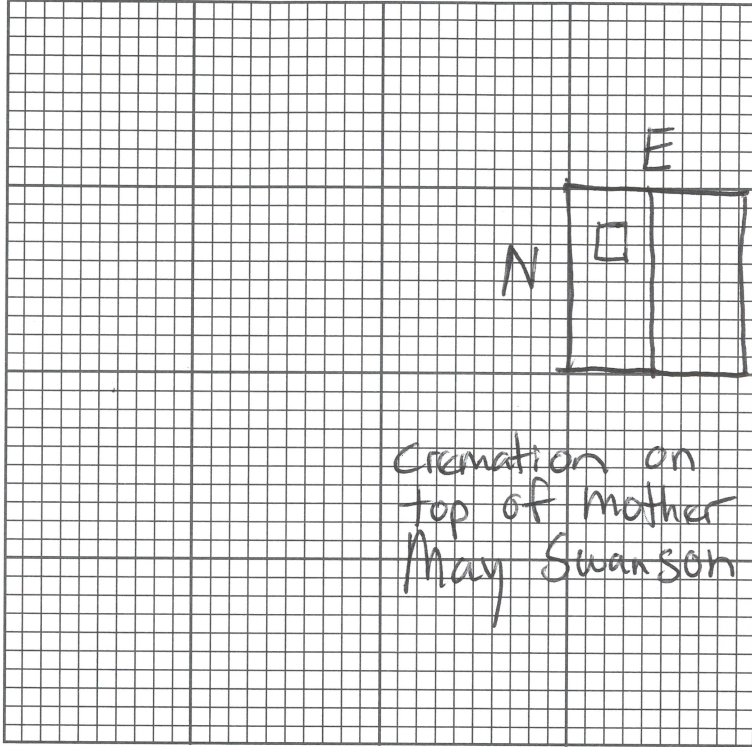 E
N
Cremation on
top of mother
May Swanson